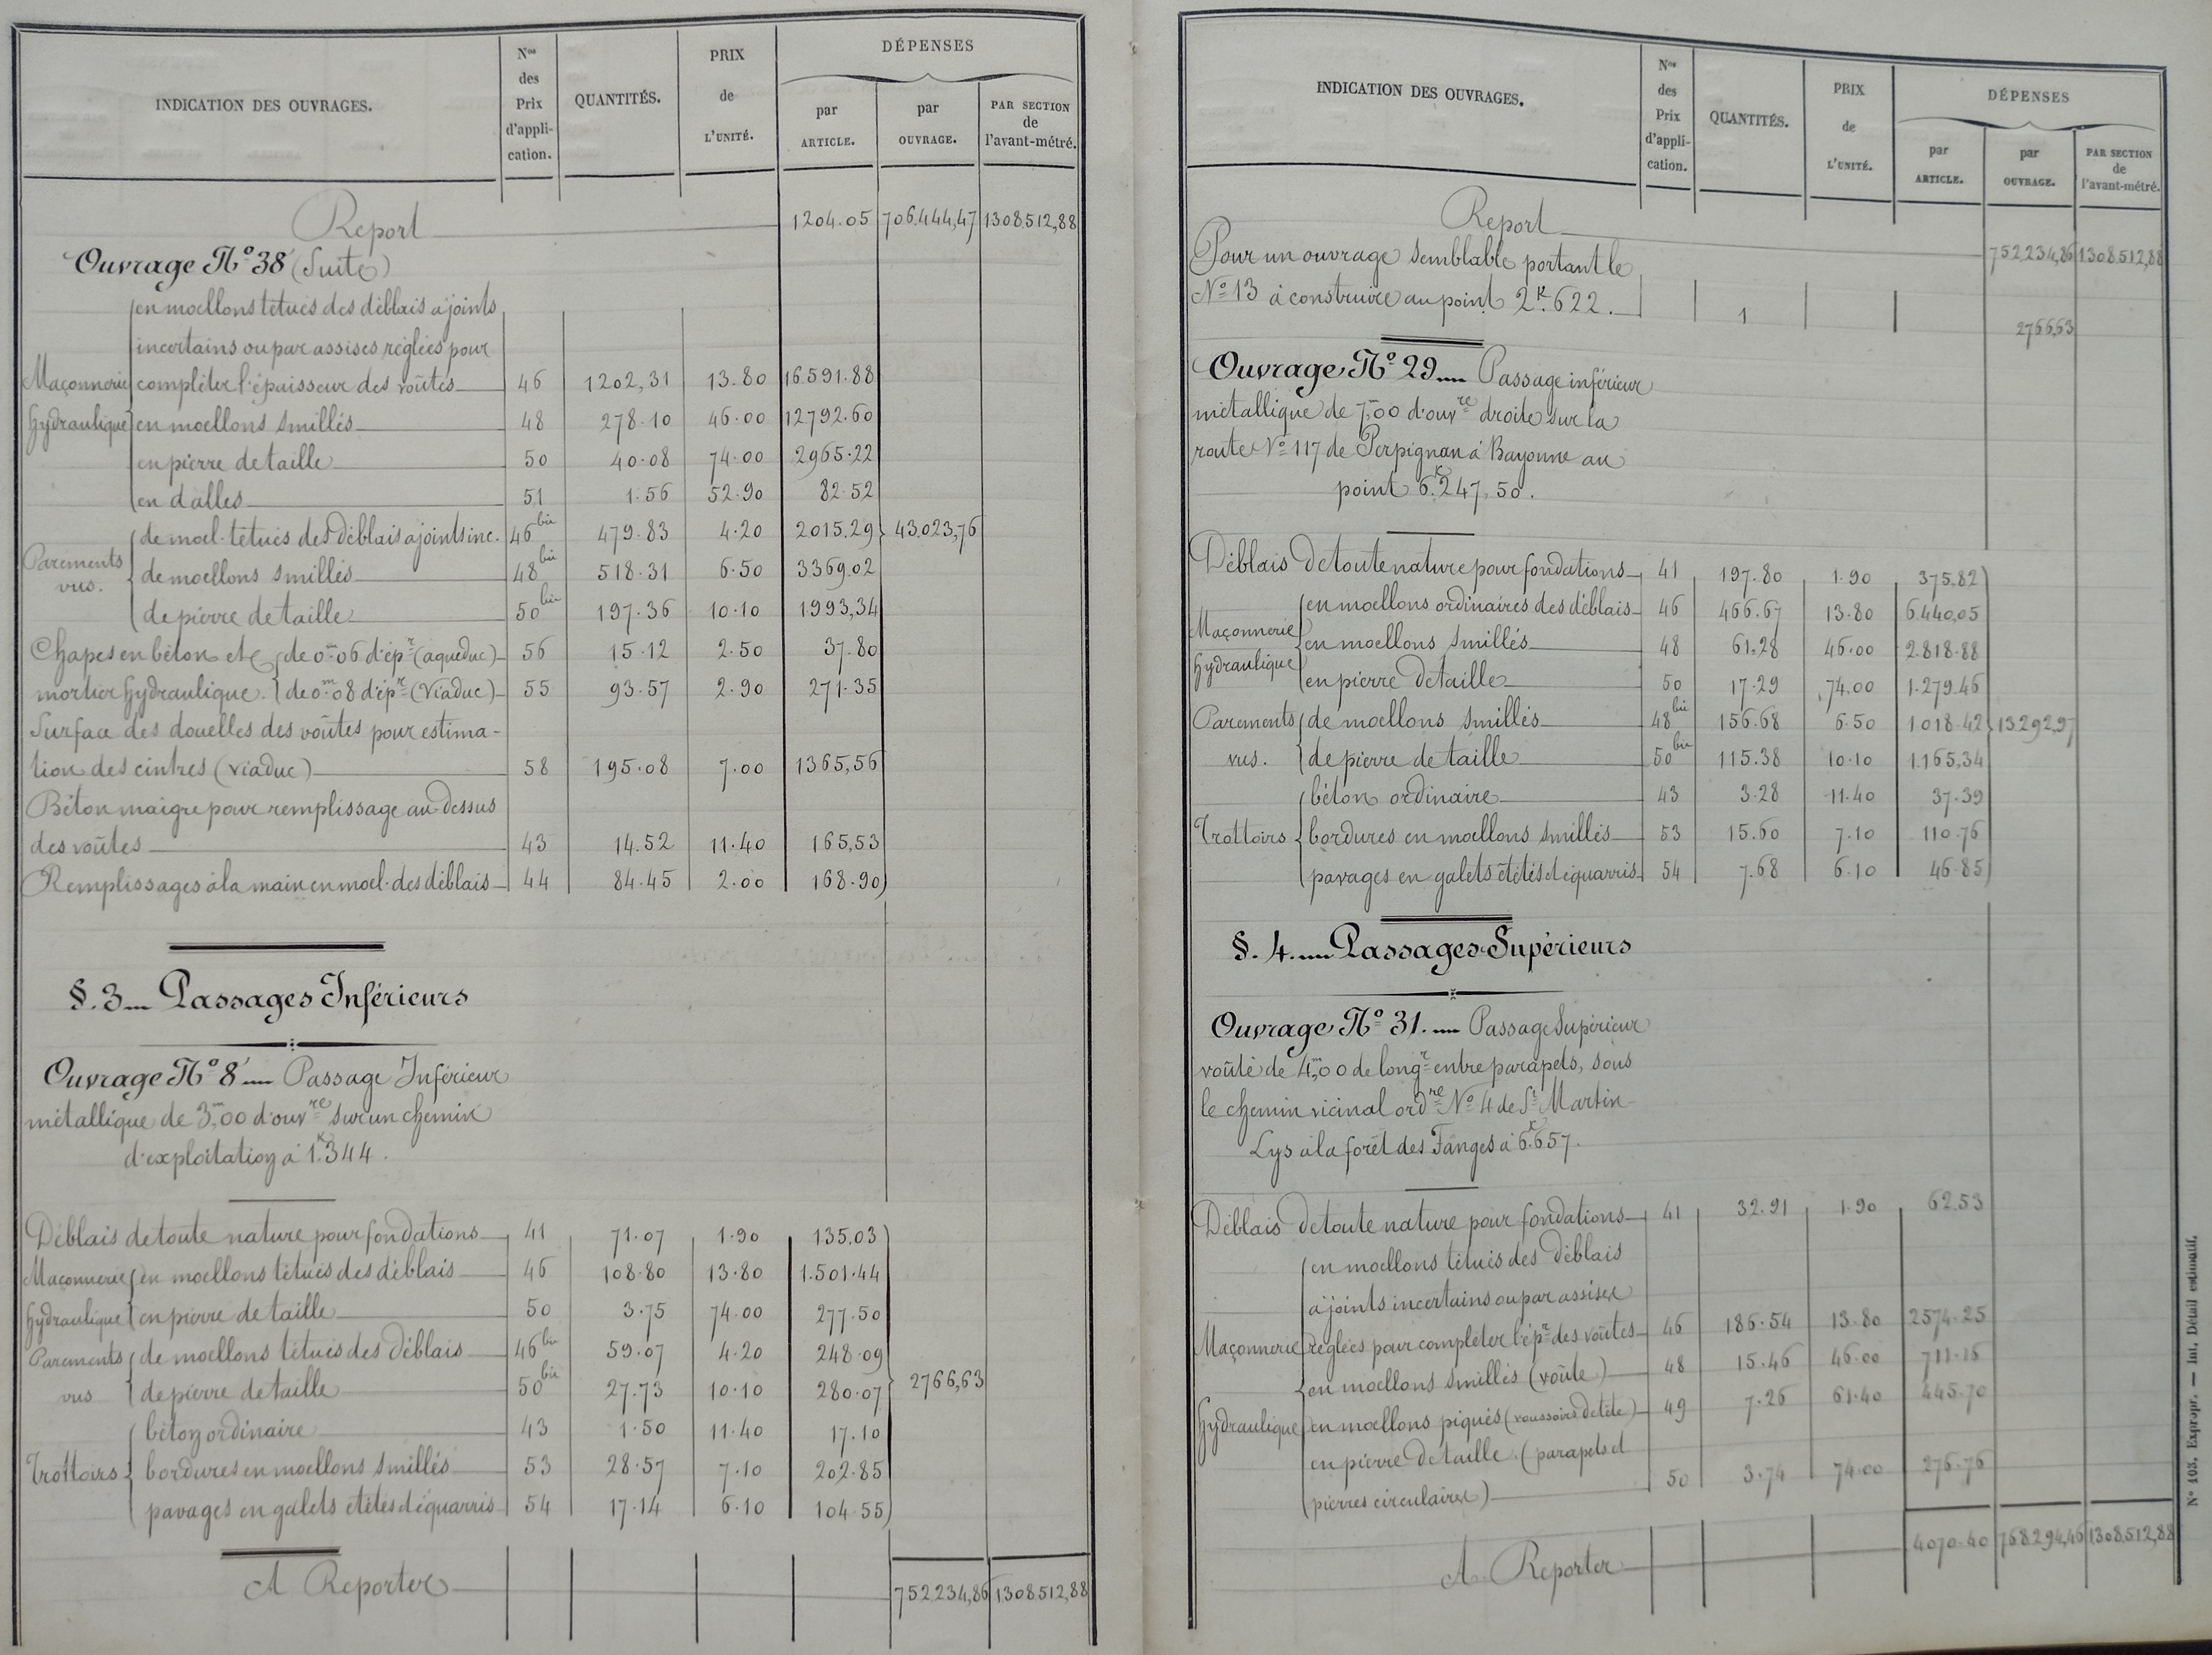 INDICATION DES OUVRAGES.
Nos des Prix d'appli-cation.
QUANTITÉS.
PRIX de L'UNITÉ.
DÉPENSES
par ARTICLE.
par OUVRAGE.
PAR SECTION de l'avant-métré.
Report 1204.05 706.444,47 1308.512,88
Ouvrage No 38 (Suite)
en moellons têtués des déblais à joints
incertains ou par assises réglées pour
Maçonnerie compléter l'épaisseur des voûtes 46 1202,31 13.80 16.591.88
hydraulique en moellons smillés 48 278.10 46.00 12792.60
en pierre de taille 50 40.08 74.00 2965.22
en dalles 51 1.56 52.90 82.52
de moel. têtués des déblais à joints inc. 46 bis 479.83 4.20 2015.29 43.023,76
Parements vus. de moellons smillés 48 bis 518.31 6.50 3369.02
de pierre de taille 50 bis 197.36 10.10 1993,34
Chapes en béton et de 0m.06 d'épr (aqueduc) 56 15.12 2.50 37.80
mortier hydraulique. de 0m.08 d'épr (viaduc) 55 93.57 2.90 271.35
Surface des douelles des voûtes pour estima-
tion des cintres (viaduc) 58 195.08 7.00 1365,56
Béton maigre pour remplissage au-dessus
des voûtes 43 14.52 11.40 165,53
Remplissages à la main en moel. des déblais 44 84.45 2.00 168.90
§.3 Passages Inférieurs
Ouvrage No 8' Passage Inférieur
métallique de 3m,00 d'ouvre sur un chemin
d'exploitation à 1k.344.
Déblais de toute nature pour fondations 41 71.07 1.90 135.03
Maçonnerie en moellons têtués des déblais 46 108.80 13.80 1.501.44
hydraulique en pierre de taille 50 3.75 74.00 277.50
Parements de moellons têtués des déblais 46 bis 59.07 4.20 248.09
vus de pierre de taille 50 bis 27.73 10.10 280.07 2766,63
béton ordinaire 43 1.50 11.40 17.10
Trottoirs bordures en moellons smillés 53 28.57 7.10 202.85
pavages en galets étêtés et équarris 54 17.14 6.10 104.55
A Reporter 752.234,86 1308.512,88
INDICATION DES OUVRAGES.
Nos des Prix d'appli-cation.
QUANTITÉS.
PRIX de L'UNITÉ.
DÉPENSES
par ARTICLE.
par OUVRAGE.
PAR SECTION de l'avant-métré.
Report 752.234,86 1308.512,88
Pour un ouvrage semblable portant le
No 13 à construire au point 2k.622. 1 2766,63
Ouvrage No 29 Passage inférieur
métallique de 7m,00 d'ouvre droite sur la
route No 117 de Perpignan à Bayonne au
point 6k.247,50.
Déblais de toute nature pour fondations 41 197.80 1.90 375.82
en moellons ordinaires des déblais 46 466.67 13.80 6.440,05
Maçonnerie en moellons smillés 48 61,28 46.00 2.818.88
hydraulique en pierre de taille 50 17.29 74,00 1.279.46
Parements de moellons smillés 48 bis 156.68 6.50 1018.42 13.292,97
vus. de pierre de taille 50 bis 115.38 10.10 1.165,34
béton ordinaire 43 3.28 11.40 37.39
Trottoirs bordures en moellons smillés 53 15.60 7.10 110.76
pavages en galets étêtés et équarris 54 7.68 6.10 46.85
§.4. Passages Supérieurs
Ouvrage No 31. Passage Supérieur
voûté de 4m,00 de longr entre parapets, sous
le chemin vicinal ordre No 4 de St Martin
Lys à la forêt des Fanges à 6k.657.
Déblais de toute nature pour fondations 41 32.91 1.90 62.53
en moellons têtués des déblais
à joints incertains ou par assises
Maçonnerie réglées pour compléter l'épr des voûtes 46 186.54 13.80 2574.25
en moellons smillés (voûte) 48 15.46 46.00 711.16
hydraulique en moellons piqués (voussoirs de tête) 49 7.26 61.40 445.70
en pierre de taille (parapets et
pierres circulaires) 50 3.74 74.00 276.76
A Reporter 4070.40 768.294,46 1308.512,88
No 103. Expropr. — Int. Détail estimatif.